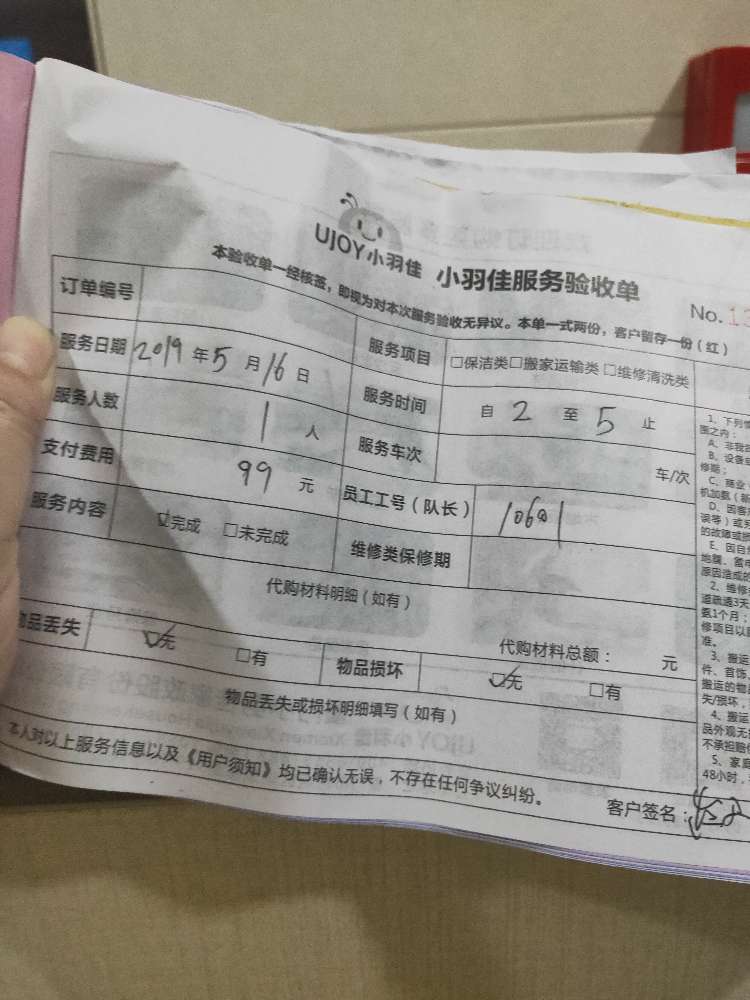 UJOY小羽佳 小羽佳服务验收单
No.
本验收单一经核签，即视为对本次服务验收无异议。本单一式两份，客户留存一份（红）
订单编号 服务项目 □保洁类□搬家运输类 □维修清洗类
服务日期 2019 年 5 月 16 日 服务时间 自 2 至 5 止
服务人数 1 人 服务车次 车/次
支付费用 99 元 员工工号（队长）
服务内容 ☑完成 □未完成 维修类保修期
代购材料明细（如有）
代购材料总额： 元
物品丢失 ☑无 □有 物品损坏 ☑无 □有
物品丢失或损坏明细填写（如有）
本人对以上服务信息以及《用户须知》均已确认无误，不存在任何争议纠纷。
客户签名：
1、下列
围之内：
A、非我
B、设备
修期；
C、商业
机加氨（
D、因客
误等）或
的故障或
E、因自
地震、雷
原因造成的
2、维修
道疏通3天
氨1个月；
修项目以
准。
3、搬运
件、首饰、
搬运的物
失/损坏，
4、搬运
品外观无
不承担赔
5、家庭
48小时，